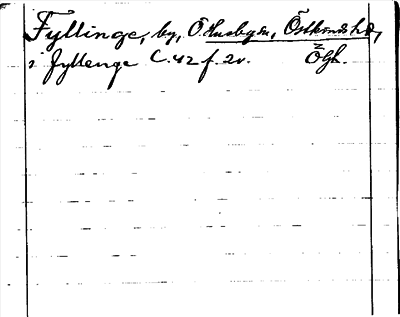 Fyllinge, by, Ö. Husby sn, Östkinds hd,
i fyllenge C. 42 f. 2v. Ögl.